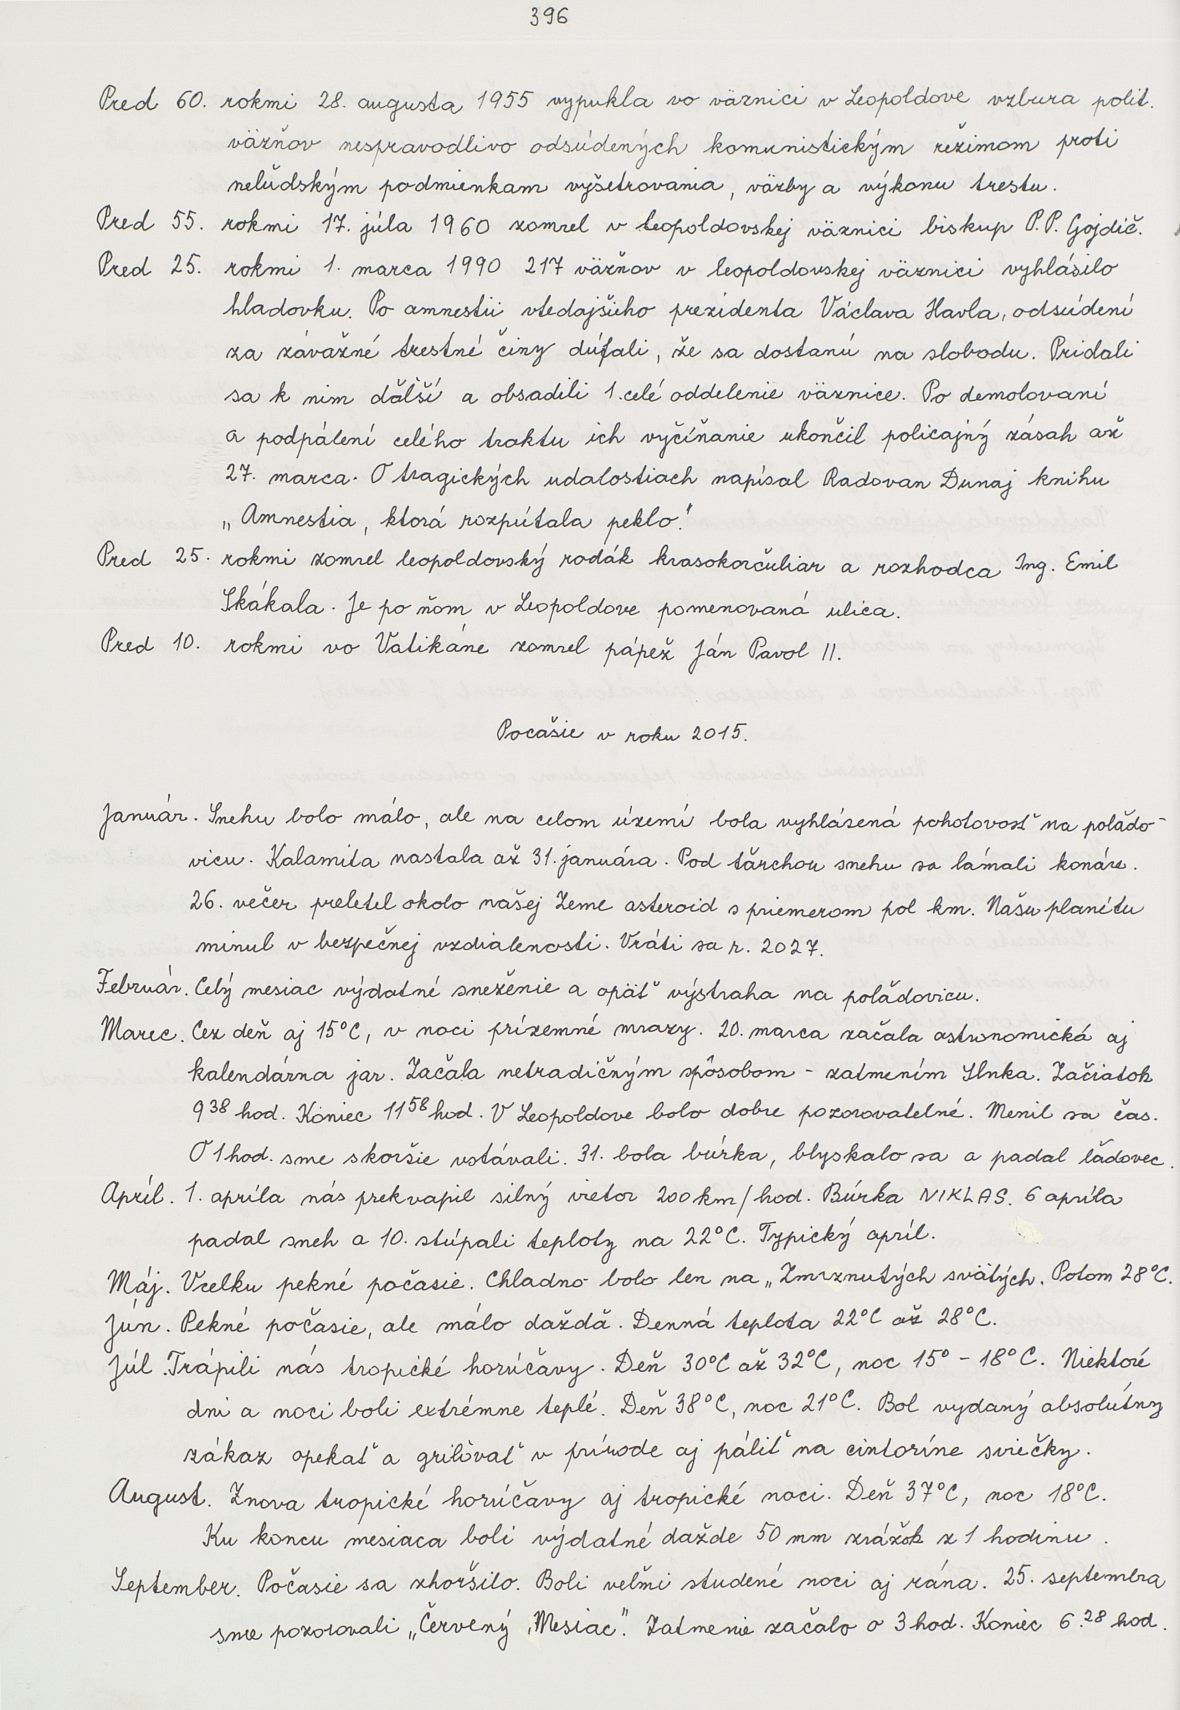 396
Pred 60. rokmi 28. augusta 1955 vypukla vo väznici v Leopoldove vzbura polit.
väzňov nespravodlivo odsúdených komunistickým režimom proti
neľudským podmienkam vyšetrovania, väzby a výkonu trestu.
Pred 55. rokmi 17. júla 1960 zomrel v leopoldovskej väznici biskup P.P. Gojdič.
Pred 25. rokmi 1. marca 1990 217 väzňov v leopoldovskej väznici vyhlásilo
hladovku. Po amnestii vtedajšieho prezidenta Václava Havla, odsúdení
za závažné trestné činy dúfali, že sa dostanú na slobodu. Pridali
sa k nim ďalší a obsadili 1. celé oddelenie väznice. Po demolovaní
a podpálení celého traktu ich vyčíňanie ukončil policajný zásah až
27. marca. O tragických udalostiach napísal Radovan Dunaj knihu
„Amnestia, ktorá rozpútala peklo."
Pred 25. rokmi zomrel leopoldovský rodák krasokorčuliar a rozhodca Ing. Emil
Skákala. Je po ňom v Leopoldove pomenovaná ulica.
Pred 10. rokmi vo Vatikáne zomrel pápež Ján Pavol II.
Počašie v roku 2015.
Január. Snehu bolo málo, ale na celom území bola vyhlásená pohotovosť na poľado-
vicu. Kalamita nastala až 31. januára. Pod ťarchou snehu sa lámali konáre.
26. večer preletel okolo našej Zeme asteroid s priemerom pol km. Našu planétu
minul v bezpečnej vzdialenosti. Vráti sa r. 2027.
Február. Celý mesiac výdatné sneženie a opäť výstraha na poľadovicu.
Marec. Cez deň aj 15°C, v noci prízemné mrazy. 20. marca začala astronomická aj
kalendárna jar. Začala netradičným spôsobom - zatmením Slnka. Začiatok
9³⁸ hod. Koniec 11⁵⁸ hod. V Leopoldove bolo dobre pozorovateľné. Menil sa čas.
O 1 hod. sme skoršie vstávali. 31. bola búrka, blyskalo sa a padal ľadovec.
Apríl. 1. apríla nás prekvapil silný vietor 200 km/hod. Búrka NIKLAS. 6 apríla
padal sneh a 10. stúpali teploty na 22°C. Typický apríl.
Máj. Vcelku pekné počasie. Chladno bolo len na „Zmrznutých svätých. Potom 28°C.
Jún. Pekné počasie, ale málo dažďa. Denná teplota 22°C až 28°C.
Júl. Trápili nás tropické horúčavy. Deň 30°C až 32°C, noc 15° - 18°C. Niektoré
dni a noci boli extrémne teplé. Deň 38°C, noc 21°C. Bol vydaný absolútny
zákaz opekať a grilovať v prírode aj páliť na cintoríne sviečky.
August. Znova tropické horúčavy aj tropické noci. Deň 37°C, noc 18°C.
Ku koncu mesiaca boli výdatné dažde 50 mm zrážok z 1 hodinu.
September. Počasie sa zhoršilo. Boli veľmi studené noci aj rána. 25. septembra
sme pozorovali „Červený Mesiac". Zatmenie začalo o 3 hod. Koniec 6.²⁸ hod.